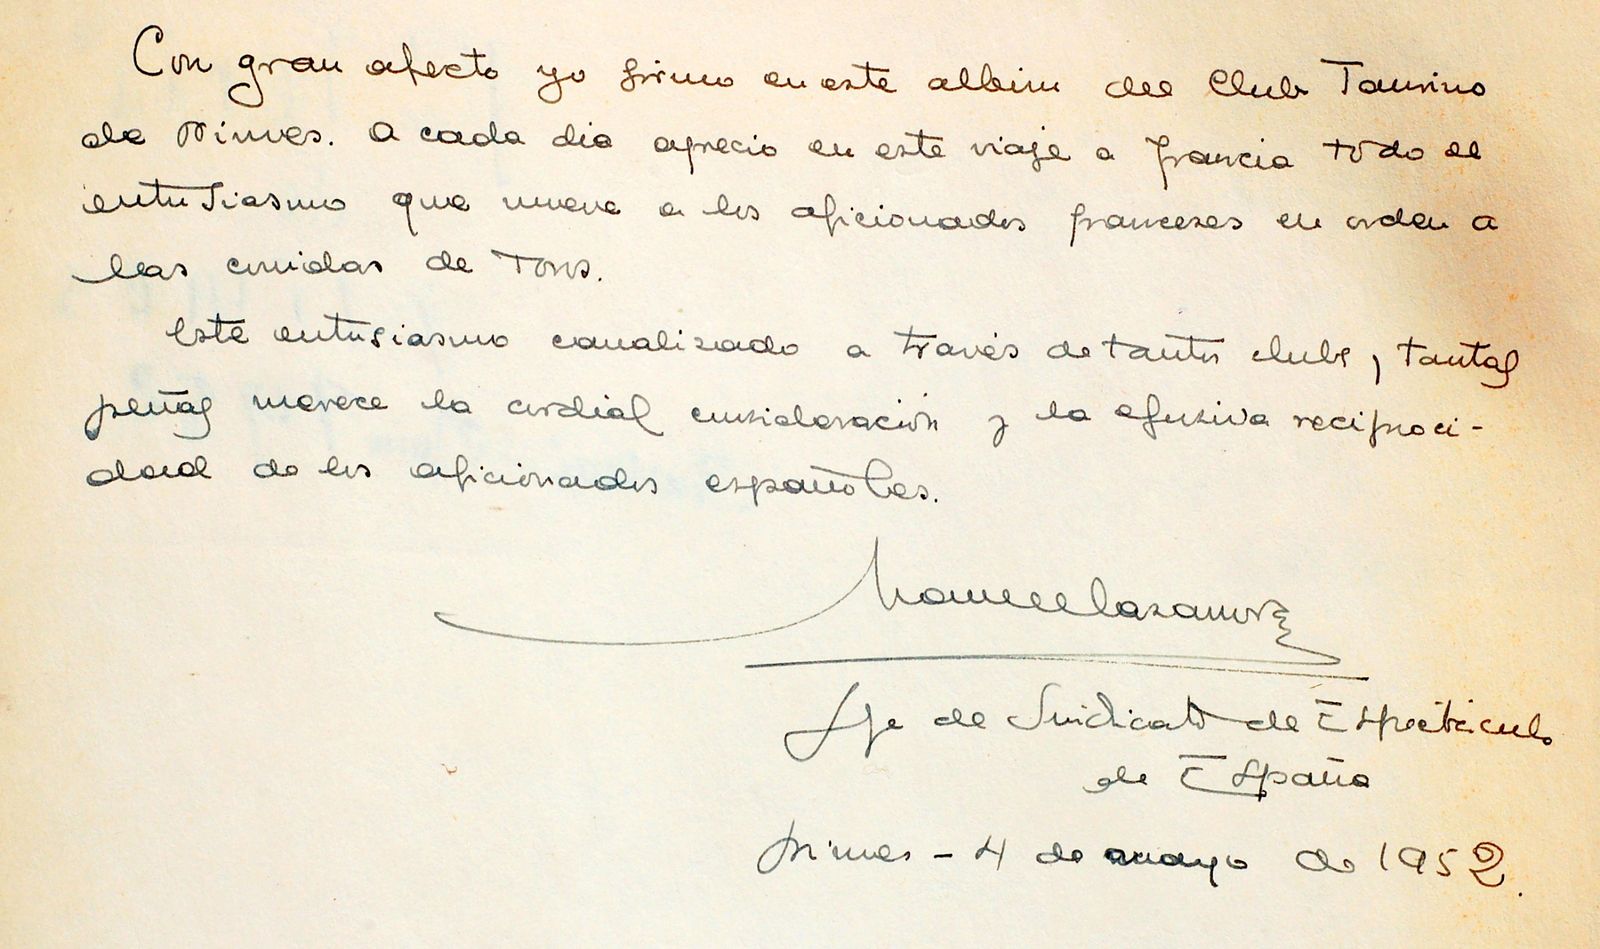 Con gran afecto yo firmo en este album del Club Taurino
de Nimes. A cada dia aprecio en este viaje a francia todo el
entusiasmo que mueve a los aficionados franceses en orden a
las corridas de Toros.
Este entusiasmo canalizado a través de tantos clubs, tantas
peñas merece la cordial consideración y la efusiva reciproci-
dad de los aficionados españoles.
Manuel Casanova
Jefe de Sindicato de Espectáculo
de España
Nimes - 4 de mayo de 1952.